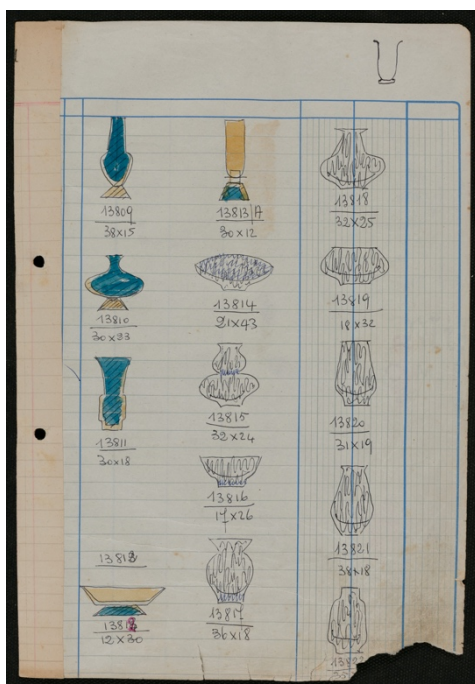 13809
38x15
13810
30x23
13811
30x18
13812
12x30
13813 A
30x12
13814
21x43
13815
32x24
13816
17x26
13817
36x18
13818
32x25
13819
18x32
13820
31x19
13821
38x18